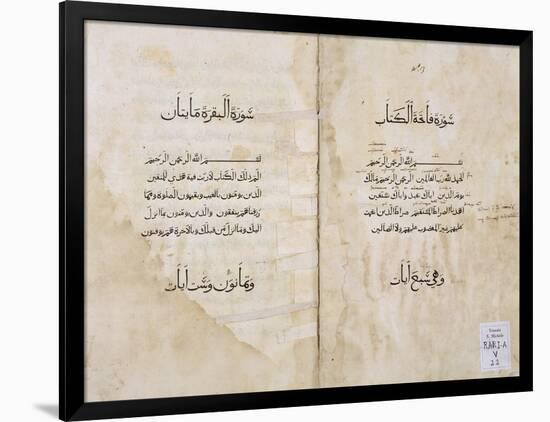 سورة فاتحة الكتاب
بسم الله الرحمن الرحيم
الحمد لله رب العالمين الرحمن الرحيم مالك
يوم الدين اياك نعبد واياك نستعين
اهدنا الصراط المستقيم صراط الذين انعمت
عليهم غير المغضوب عليهم ولا الضالين
وهي سبع آيات
سورة البقرة مايتان
بسم الله الرحمن الرحيم
الم ذلك الكتاب لا ريب فيه هدى للمتقين
الذين يومنون بالغيب ويقيمون الصلوة ومما
رزقناهم ينفقون والذين يومنون بما انزل
اليك وما انزل من قبلك وبالاخرة هم يوقنون
وثمانون وست آيات
S. Michele
RARI-A
V
22